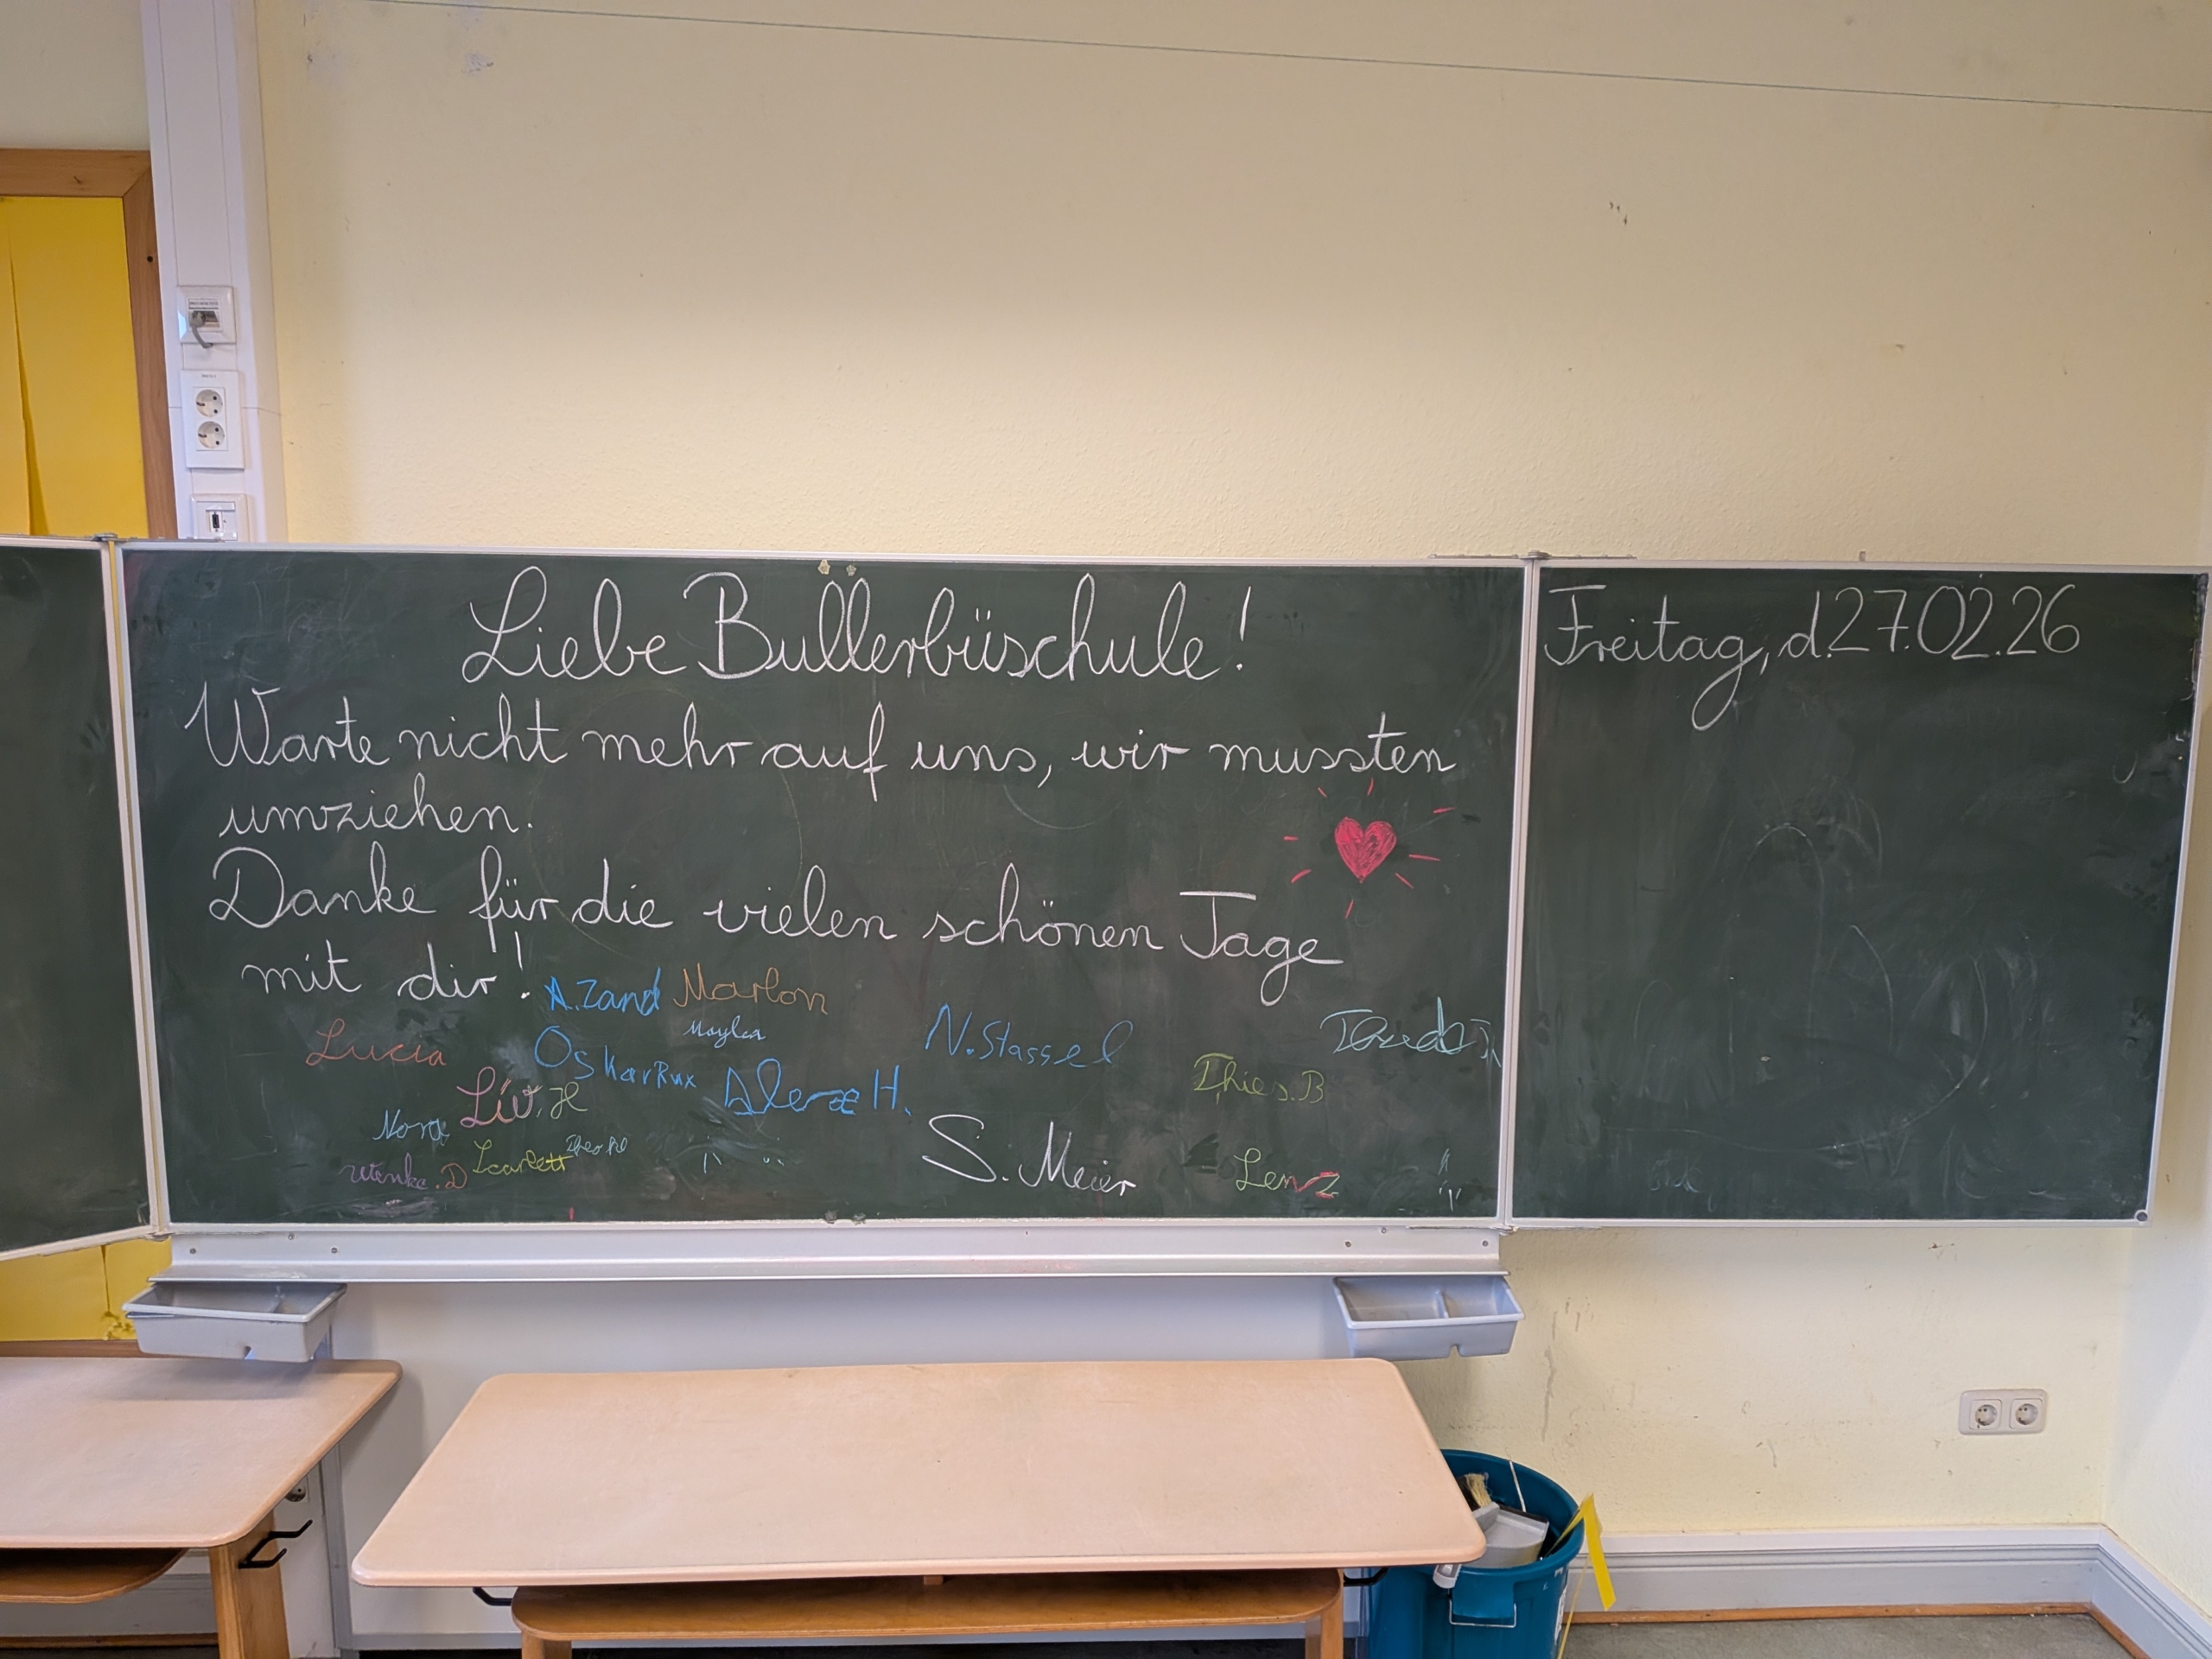 Liebe Bullerbüschule!
Warte nicht mehr auf uns, wir mussten
umziehen.
Danke für die vielen schönen Tage
mit dir!
A.Zand Marlon
Lucia
Oskar Rux
N.Stassel
Liv.H
Alex H.
Thies.B
Nora
Wenke.D Scarlett
S. Meier
Lenz
Freitag, d.27.02.26